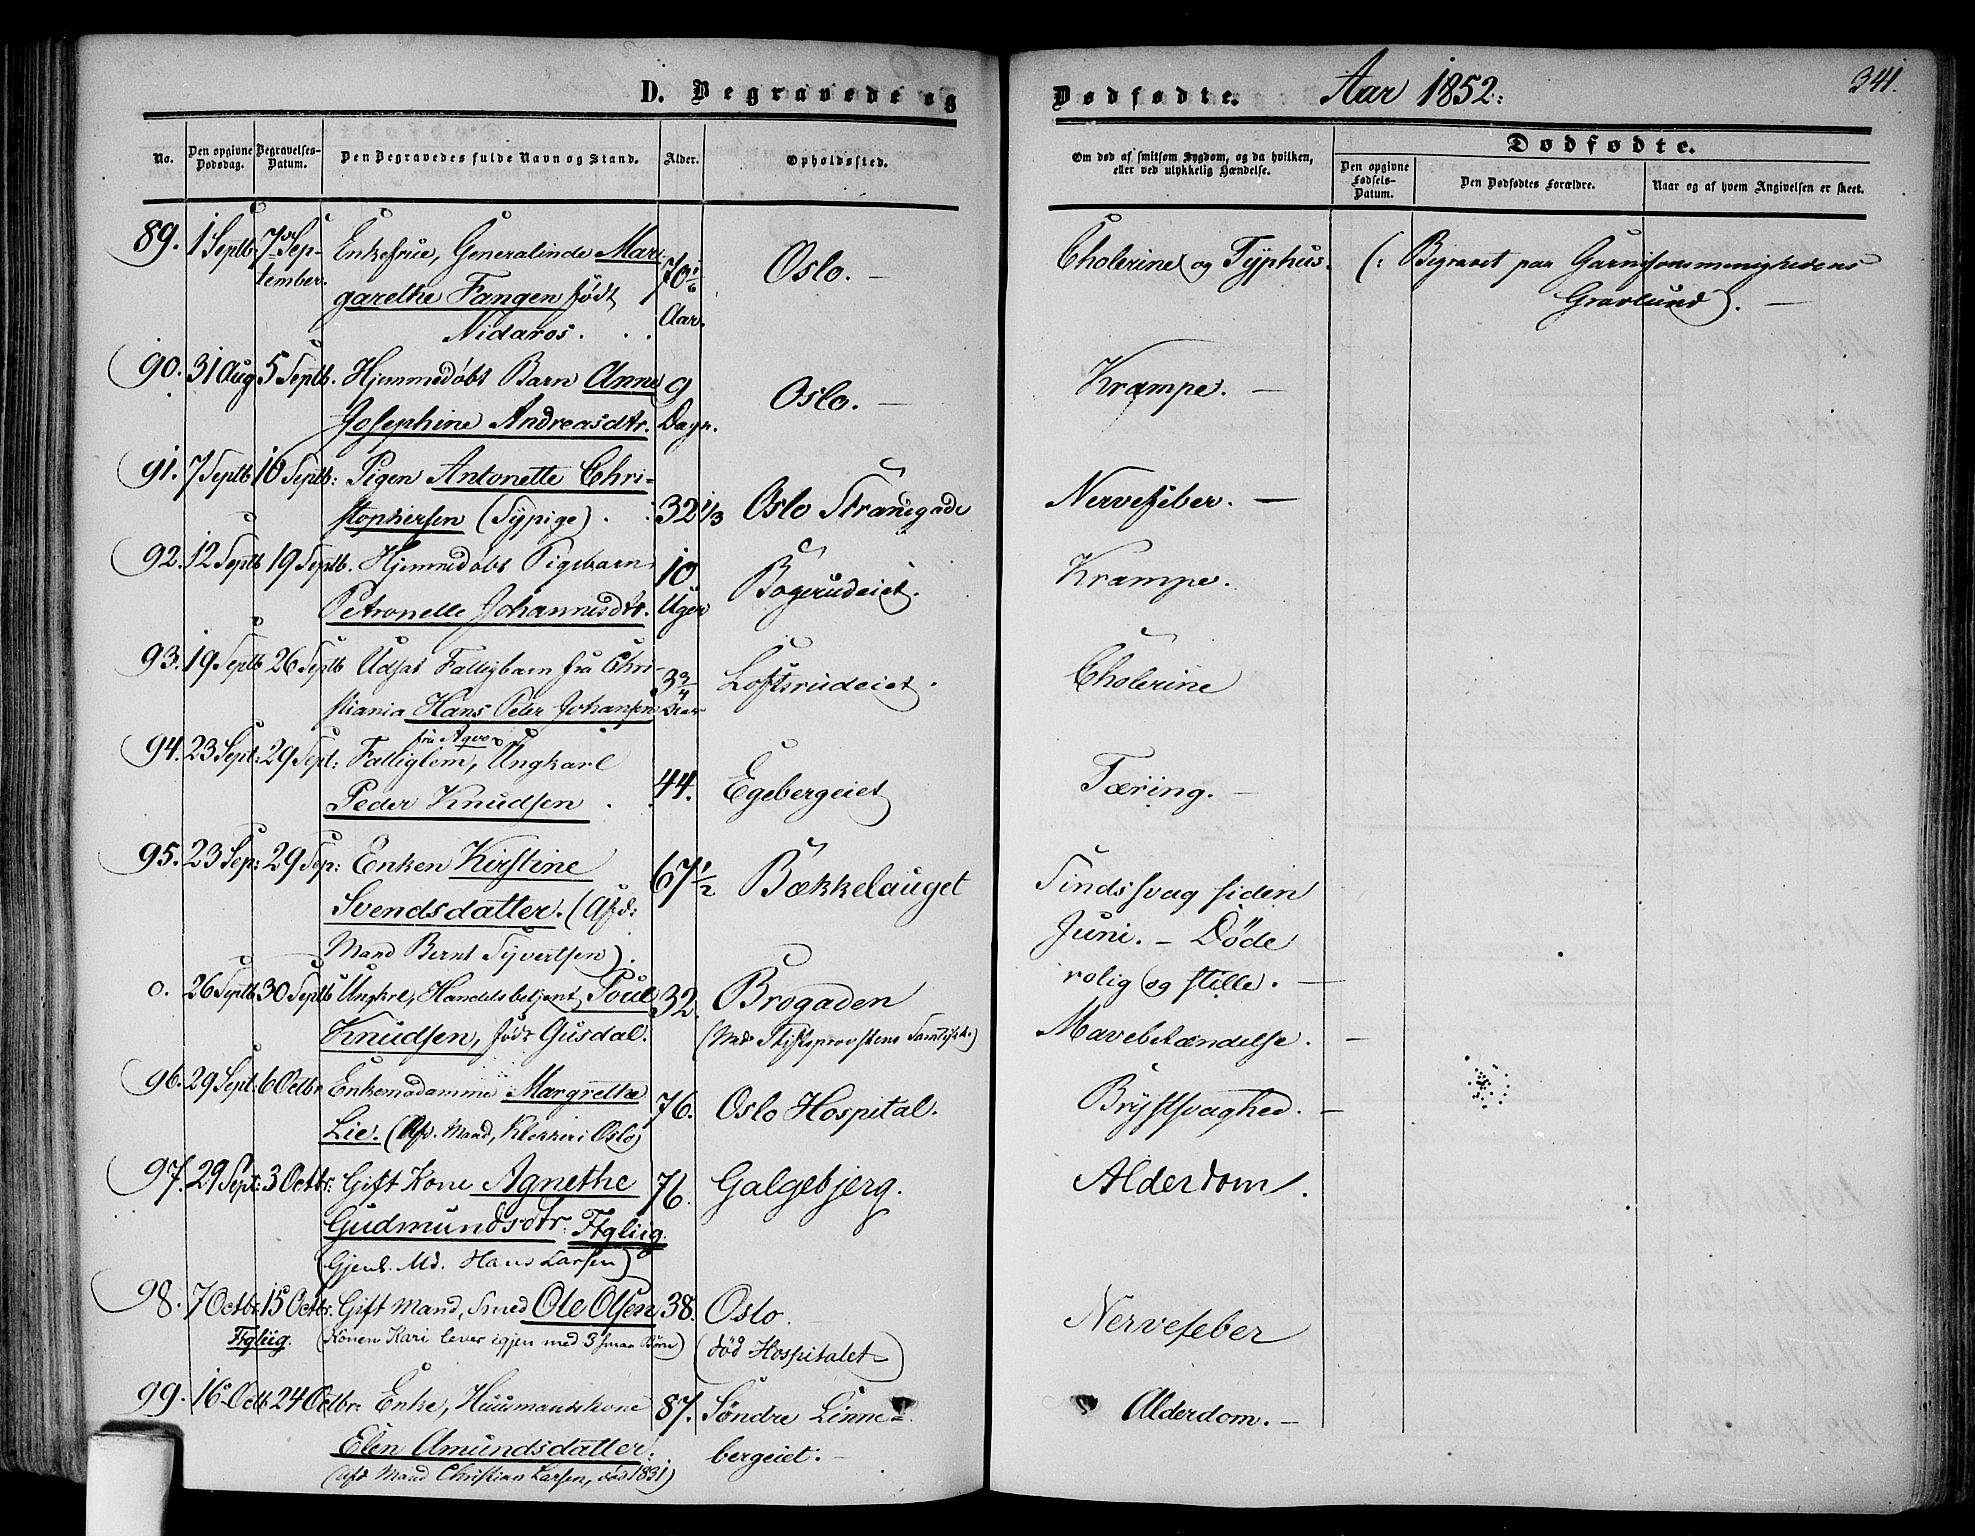 D. Begravede og Dødfødte. Aar 1852. 341.
No.
Den opgivne Dødsdag.
Begravelses-Datum.
Den Begravedes fulde Navn og Stand.
Alder.
Opholdssted.
Om død af smitsom Sygdom, og da hvilken, eller ved ulykkelig Hændelse.
Dødfødte.
Den opgivne Fødsels-Datum.
Den Dødfødtes Forældre.
Naar og af hvem Angivelsen er skeet.
89. 1 Septb. 7 Sep- Enkefrue, Generalinde Mar- 70 1/6 Oslo. Cholerine og Typhus. (: Begravet paa Garnisonsmenighedens
tember. garethe Fangen født Aar. Gravlund).
Nidaros.
90. 31 Aug 5 Septb. Hjemmedøbt Barn Anne 9 Oslo. Krampe.
Josephine Andreasdtr. Dage.
91. 7 Septb 10 Septb: Pigen Antonette Chri- Nervefeber.
stophersen (Sypige). 32 1/3 Oslo Strandgade
92. 12 Septb 19 Septb. Hjemmedøbt Pigebarn 10 Bogerudeiet. Krampe.
Petronelle Johannesdtr. Uger
93. 19 Septb 26 Septb Udsat Fattigbarn fra Chri- 3 3/4 Loftsrudeiet. Cholerine
stiania Hans Peter Johansen Aar
fra Agve
94. 23 Sept: 29 Sept: Fattiglem, Ungkarl 44. Egebergeiet Tæring.
Peder Knudsen
95. 23 Sep: 29 Sep: Enken Kirstine 67 1/2 Bækkelauget Sindssvag siden
Svendsdatter. (Afd: Juni. - Døde
Mand Bernt Syvertsen). rolig og stille.
0. 26 Septb 30 Septb Ungkrl, Handelsbetjent Poul 32. Brogaden Mavebetændelse.
Knudsen, født Gusdal. (Med Stiftsprovstens
96. 29 Sept: 6 Octbr Enkemadamme Margrethe 76. Oslo Hospital. Brystsvaghed.
Lie. (Afd. Mand, Klokker i Oslo)
97. 29 Sept: 3 Octbr: Gift Kone Agnethe 76. Galgebjerg. Alderdom.
Gudmundsdtr. Ftgliig.
(Gjenl. Md. Hans Larsen)
98. 7 Octbr 15 Octbr. Gift Mand, Smed Ole Olsen 38. Oslo Nervefeber
Ftgliig. (Konen Kari lever igjen med 3 smaa Børn) (død Hospitalet)
99. 16 Octb 24 Octbr: Enke, Huusmandskone 87. Søndre Linne- Alderdom.
Elen Amundsdatter. bergeiet.
(Afd Mand Christian Larsen, død 1831)